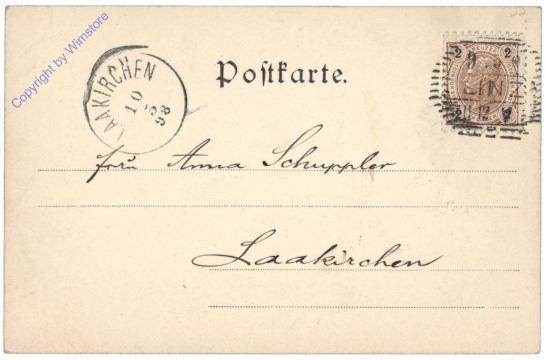 Copyright by Wimstore
LAAKIRCHEN
10
5
98
Postkarte.
2 KREUZER 2
9 5
LIN
11-12
Anna Schuppler
Laakirchen